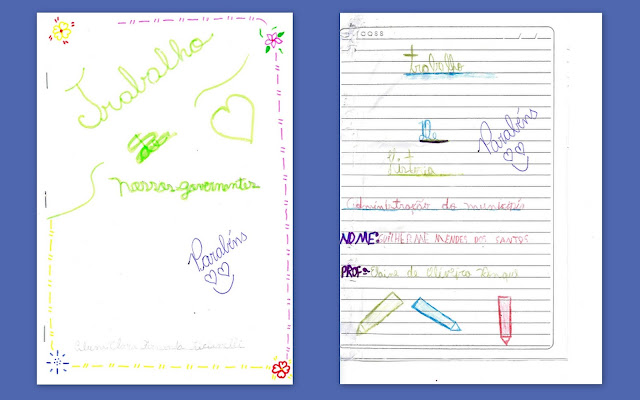 Trabalho
de
nossos governantes
Parabéns
Trabalho
De
História
Parabéns
Administração do
NOME: GUILHERME MENDES DOS SANTOS
PROF= de Oliveira